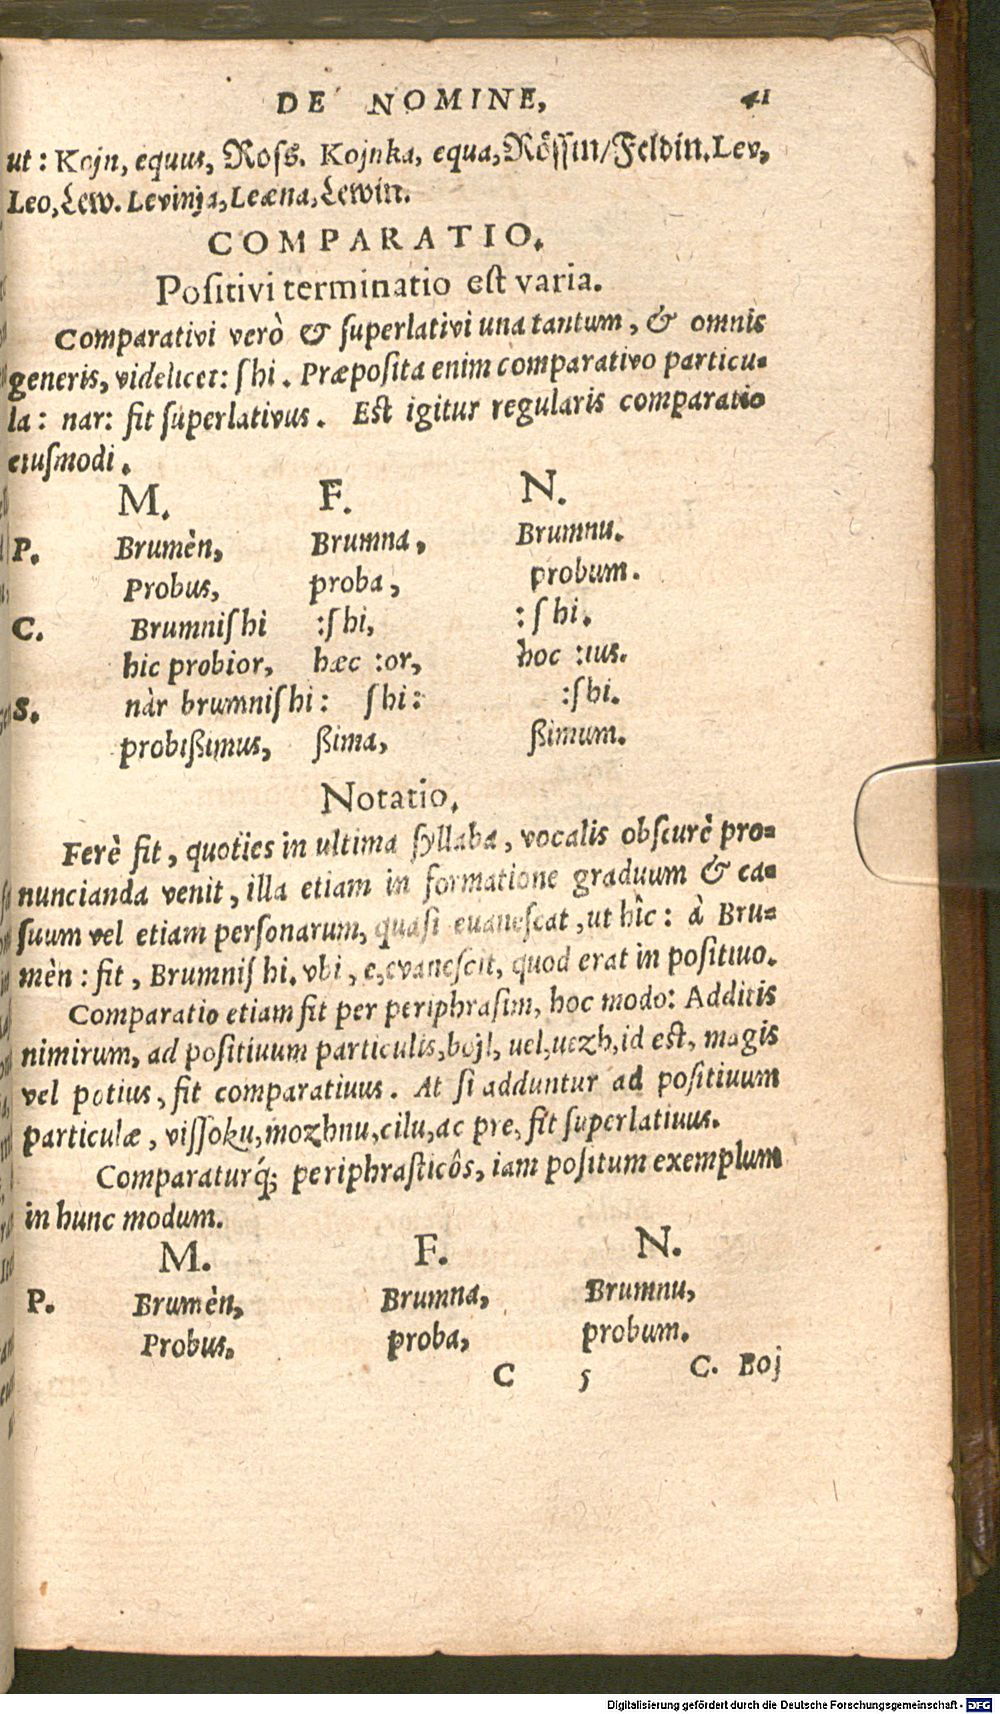 DE NOMINE, 41
ut: Kojn, equus, Ross. Kojnka, equa, Rössin/Feldin. Lev,
Leo, Lew. Levinja, Leæna, Lewin.
COMPARATIO.
Positivi terminatio est varia.
Comparativi verò & superlativi una tantum, & omnis
generis, videlicet: shi. Præposita enim comparativo particu-
la: nar: fit superlativus. Est igitur regularis comparatio
eiusmodi.
M. F. N.
P. Brumèn, Brumna, Brumnu.
Probus, proba, probum.
C. Brumnishi :shi, :shi.
hic probior, hæc :or, hoc :ius.
S. nàr brumnishi: shi: :shi.
probißimus, ßima, ßimum.
Notatio.
Ferè fit, quoties in ultima syllaba, vocalis obscurè pro-
nuncianda venit, illa etiam in formatione graduum & ca-
suum vel etiam personarum, quasi evanescat, ut hîc: à Bru-
mèn: fit, Brumnishi. vbi, e, evanescit, quod erat in positivo.
Comparatio etiam fit per periphrasim, hoc modo: Additis
nimirum, ad positiuum particulis, bojl, uel, uezh, id est, magis
vel potius, fit comparatiuus. At si adduntur ad positiuum
particulæ, vissoku, mozhnu, cilu, ac pre, fit superlatiuus.
Comparaturq́; periphrasticôs, iam positum exemplum
in hunc modum.
M. F. N.
P. Brumèn, Brumna, Brumnu,
Probus. proba, probum.
C 5 C. Boj
Digitalisierung gefördert durch die Deutsche Forschungsgemeinschaft - DFG